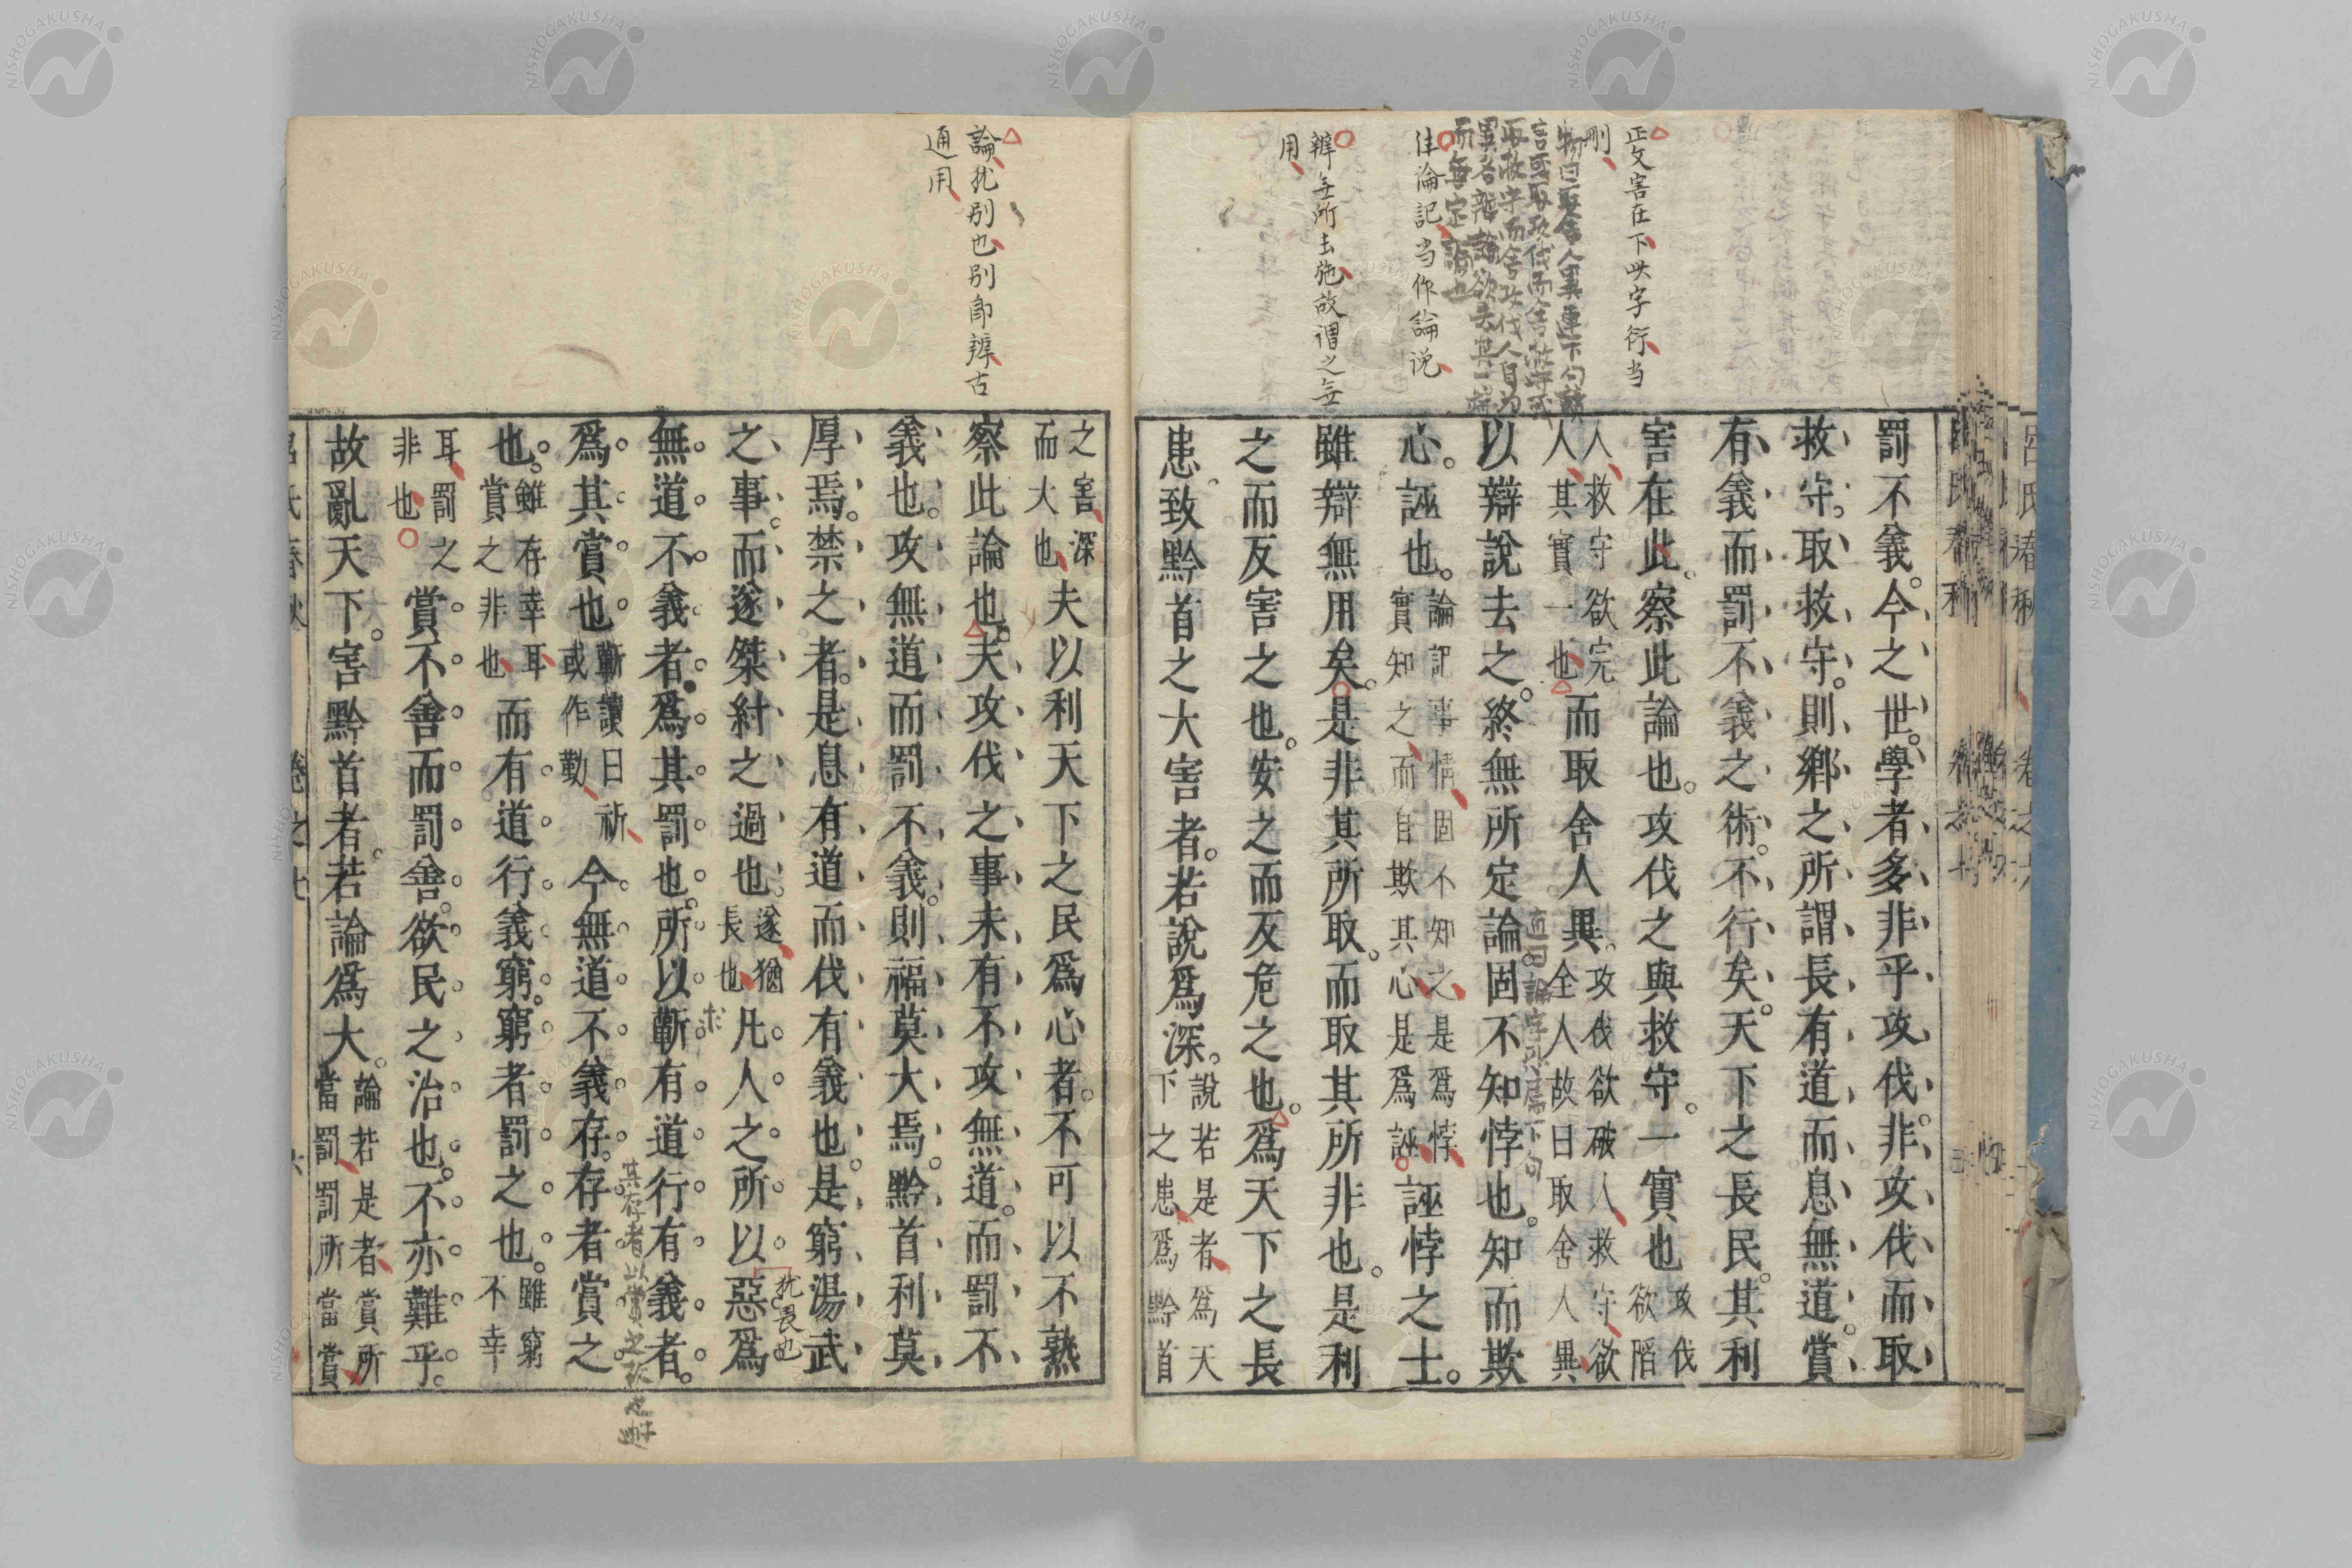 正文害在下
刪
物曰取舍人異連下句讀
注論記当作論説
辨無所去施故謂之無
用
罰不義。今之世。學者多非乎攻伐。非攻伐而取
救守。取救守。則鄉之所謂長有道而息無道。賞
有義而罰不義之術。不行矣。天下之長民。其利
害在此。察此論也。攻伐之與救守。一實也攻伐
欲陷
人救守欲完
人其實一也
而取舍人異。攻伐欲破人救守欲
全人故曰取舍人異
以辯說去之。終無所定論固不知悖也。知而欺
心。誣也。論記事情固不知之是爲悖
實知之而自欺其心是爲誣
誣悖之士。
雖辯無用矣。是非其所取。而取其所非也。是利
之而反害之也。安之而反危之也。爲天下之長
患。致黔首之大害者。若說爲深。說若是者爲天
下之患爲黔首
論猶別也別即辨古
通用
之害深
而大也
夫以利天下之民爲心者。不可以不熟
察此論也。夫攻伐之事未有不攻無道。而罰不
義也。攻無道而罰不義。則福莫大焉。黔首利莫
厚焉。禁之者。是息有道而伐有義也。是窮湯武
之事。而遂桀紂之過也。遂猶
長也
凡人之所以惡爲
猶畏也
無道不義者。爲其罰也。所以蘄有道行有義者。
爲其賞也蘄讀曰祈
或作勤
今無道不義存。存者賞之
也。雖存幸耳
賞之非也
而有道行義窮。窮者罰之也。雖窮
不幸
耳罰之
非也
賞不善而罰善。欲民之治也。不亦難乎。
故亂天下。害黔首者。若論爲大。論若是者賞所
當罰罰所當賞
呂氏春秋 卷之七
NISHOGAKUSHA